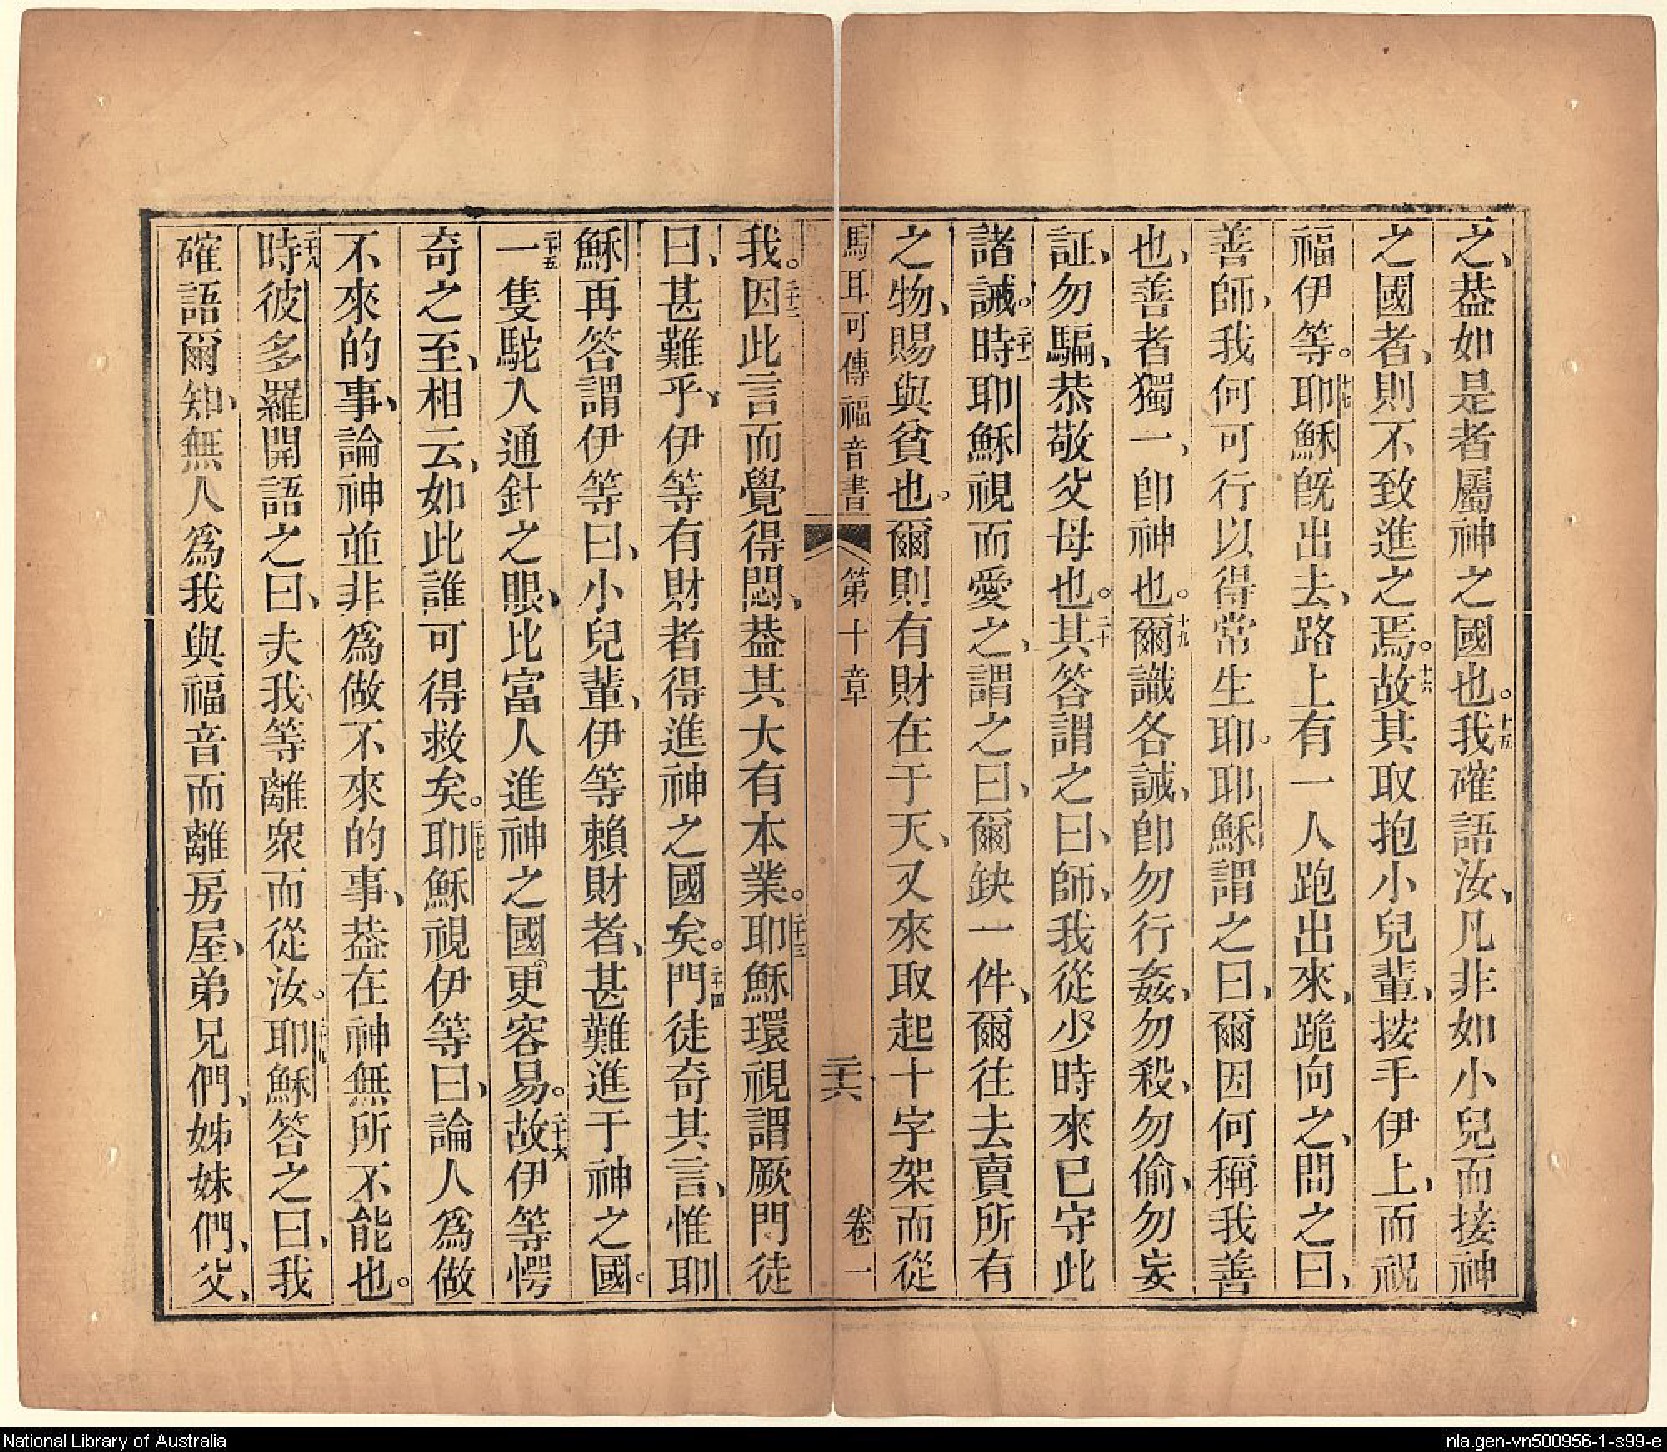 之、葢如是者屬神之國也。十五我確語汝、凡非如小兒而接神
之國者、則不致進之焉。十六故其取抱小兒輩、按手伊上、而祝
福伊等。十七耶穌旣出去、路上有一人跑出來、跪向之、問之曰、
善師、我何可行以得常生耶。耶穌謂之曰、爾因何稱我善
也、善者獨一、卽神也。十九爾識各誡、卽勿行姦、勿殺、勿偷、勿妄
証、勿騙、恭敬父母也。二十其答謂之曰、師、我從少時來已守此
諸誡。二十一時耶穌視而愛之、謂之曰、爾缺一件、爾往去賣所有
之物、賜與貧也。爾則有財在于天、又來取起十字架而從
馬耳可傳福音書 第十章 二十六 卷一
我。二十二因此言而覺得悶、葢其大有本業。二十三耶穌環視謂厥門徒
曰、甚難乎、伊等有財者得進神之國矣。二十四門徒奇其言、惟耶
穌再答謂伊等曰、小兒輩、伊等賴財者、甚難進于神之國。
二十五一隻駝入通針之眼、比富人進神之國更容易。二十六故伊等愕
奇之至、相云、如此誰可得救矣。二十七耶穌視伊等曰、論人為做
不來的事、論神並非為做不來的事、葢在神無所不能也。
二十八時彼多羅開語之曰、夫我等離衆而從汝。二十九耶穌答之曰、我
確語爾知、無人為我與福音而離房屋、弟兄們、姊妹們、父、
National Library of Australia
nla.gen-vn500956-1-s99-e